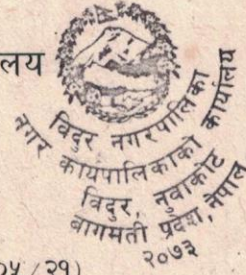 लय
विदुर नगरपालिका
नगर कार्यपालिकाको कार्यालय
विदुर, नुवाकोट
बागमती प्रदेश, नेपाल
२०७३